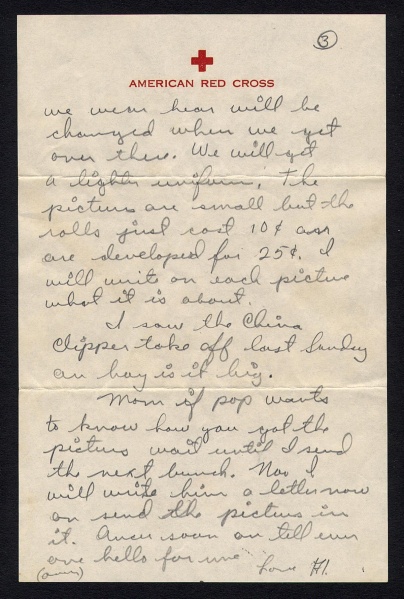 3
AMERICAN RED CROSS
we wear hear will be
changed when we get
over there. We will get
a lighter uniform. The
pictures are small but the
rolls just cost 10¢ an
are developed for 25¢. I
will write on each picture
what it is about.
I saw the China
Clipper take off last Sunday
an boy is it big.
Mom if pop wants
to know how you got the
pictures wait until I send
the next bunch. Now I
will write him a letter now
an send the pictures in
it. Answer soon an tell
hello for me
Love